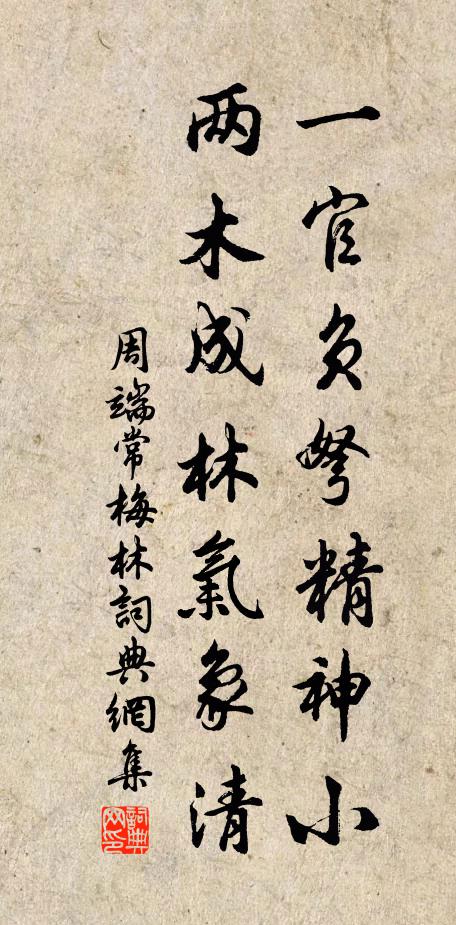 一官負弩精神小
两木成林氣象清
周端常梅林詞典網集
詞典网印